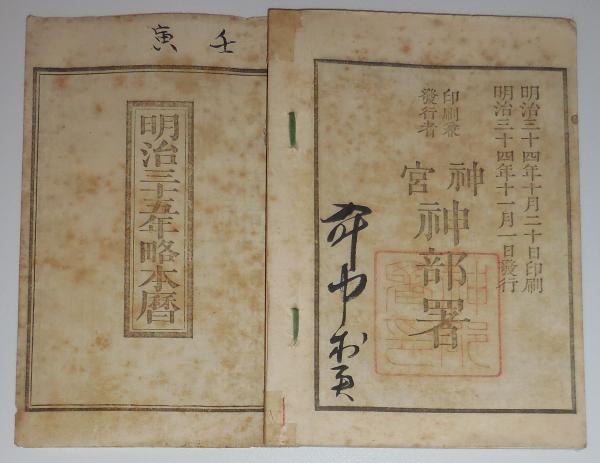 壬寅
明治三十五年略本暦
明治三十四年十月二十日印刷
明治三十四年十一月一日發行
印刷兼
發行者
神宮
神部署